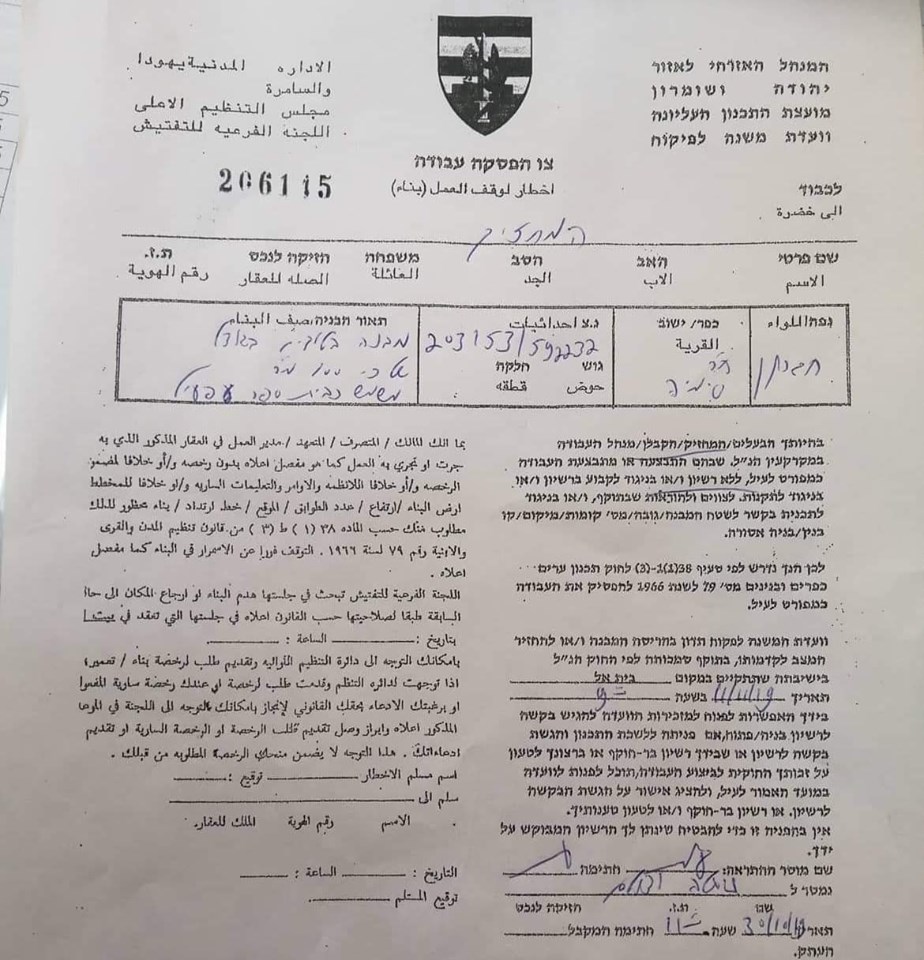 המנהל האזרחי לאזור
יהודה ושומרון
מועצת התכנון העליונה
וועדת משנה לפיקוח
الاداره المدنية يهودا
والسامرة
مجلس التنظيم الاعلى
اللجنة الفرعيه للتفتيش
צו הפסקה עבודה
اخطار لوقف العمل (بناء)
206115
לכבוד
الى حضرة
המחזיק
שם פרטי האב הסב משפחה חזיקה לנכס ת.ז.
الاسم الاب الجد العائلة الصله للعقار رقم الهوية
נפה/اللواء
חברון
כפר/ ישוב
القرية
סימיה
נ.צ احداثيات
203153/592232
גוש חלקה
حوض قطعه
תאור הבניה/صيف البناء
מבנה
משמש כבית ספר
בהיותך הבעלים/המחזיק/הקבלן/מנהל העבודה
במקרקעין הנ"ל. שבהם התבצעה או מתבצעת העבודה
כמפורט לעיל, ללא רשיון ו/או בניגוד לקבוע ברשיון ו/או
בניגוד לתקנות. לצווים ולהוראות שבתוקף, ו/או בניגוד
לתכנית בקשר לשטח המבנה/גובה/מס' קומות/מיקום/קו
בנין/בניה אסורה.
לכן הנך נדרש לפי סעיף 38(1)ג-(3) לחוק תכנון ערים
כפרים ובניינים מס' 79 לשנת 1966 להפסיק את העבודה
כמפורט לעיל.
וועדת המשנה לפקוח תדון בהריסת המבנה ו/או להחזיר
המצב לקדמותו, בתוקף סמכותה לפי החוק הנ"ל
בישיבתה שתתקיים במקום בית אל
תאריך 11/11/19 בשעה 9
בידך האפשרות לפנות למזכירות הוועדה להגיש בקשה
לרשיון בניה/פתוח, אם פניתה ללשכת התכנון והגשת
בקשה לרשיון או שבידך רשיון בר-תוקף או ברצונך לטעון
על זכותך החוקית לביצוע העבודה, תוכל לפנות לוועדה
במועד האמור לעיל, ולהציג אישור על הגשת הבקשה
לרשיון. או רשיון בר-תוקף ו/או לטעון טענותיך.
אין בהפניה זו כדי להבטיח שינתן לך הרשיון המבוקש על
ידך.
שם מוסר ההתראה: חתימה
נמסר ל
שם ת.ז. חזיקה לנכס
תאריך 30/10/19 שעה 11 חתימת המקבל
העתק.
بما انك المالك / المتصرف / المتعهد / مدير العمل في العقار المذكور الذي به
جرت او تجري به العمل كما هو مفصل اعلاه بدون رخصه و/أو خلافا لمضمو
الرخصه و/أو خلافا للانظمه والاوامر والتعليمات الساريه و/او خلافا للمخطط
ارض البناء / ارتفاع / عدد الطوابق / الموقع / خط ارتداد / بناء محظور لذلك
مطلوب منك حسب الماده ٣٨ (١) ط (٣) من قانون تنظيم المدن والقرى
والابنية رقم ٧٩ لسنة ١٩٦٦ . التوقف فورا عن الاسمرار في البناء كما مفصل
اعلاه .
اللجنة الفرعية للتفتيش تبحث في جلستها هدم البناء او ارجاع المكان الى حا
السابقة طبقا لصلاحيتها حسب القانون اعلاه في جلستها التي تعقد في بيت
بتاريخ : الساعة :
بامكانك التوجه الى دائرة التنظيم اللوائيه وتقديم طلب لرخصة بناء / تعمير؛
اذا توجهت لدائره التنظم وقدمت طلب لرخصة او عندك رخصة سارية المفعو
او برغبتك الادعاء بحقك القانوني لإنجاز بامكانك التوجه الى اللجنة في الموعد
المذكور اعلاه وابراز وصل تقديم طلب الرخصة او الرخصة السارية او تقديم
ادعاءاتك . هذا التوجه لا يضمن منحك الرخصة المطلوبه من قبلك .
اسم مسلم الاخطار توقيع :
سلم الى
الاسم رقم الهوية الملك للعقار.
التاريخ : الساعة :
توقيع المستلم